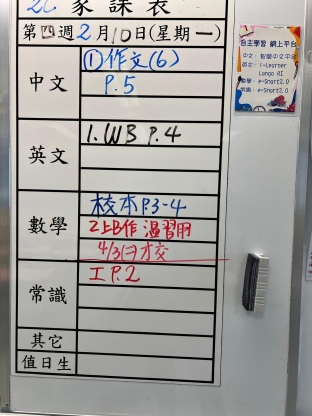 2C 家課表
第四週2月10日(星期一)
中文
①作文(6)
P.5
英文
1.WB P.4
數學
校本P.3-4
2上B作 溫習用
4/3(日)才交
常識
工P.2
其它
值日生
自主學習 網上平台
中文: 智愛中文平台
英文: i-Learner
Longo AI
數學: e-Smart2.0
常識: e-Smart2.0